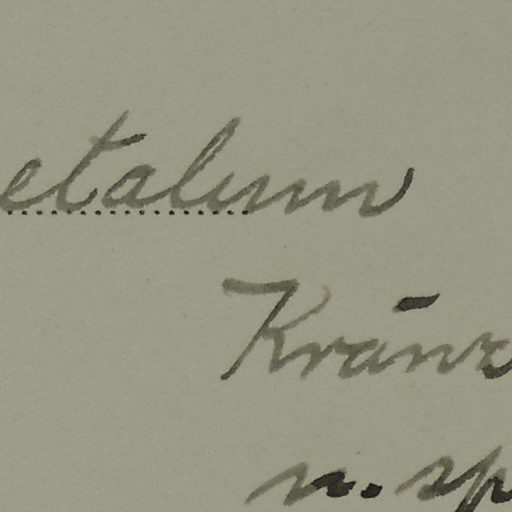 etalum
Kränz
n. sp